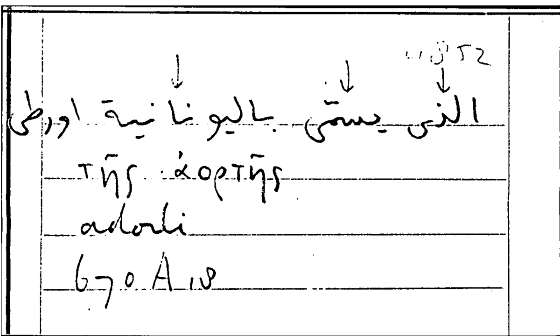 الذى يسمّى باليونانية اورطى
τῆς ἀορτῆς
670 A 18